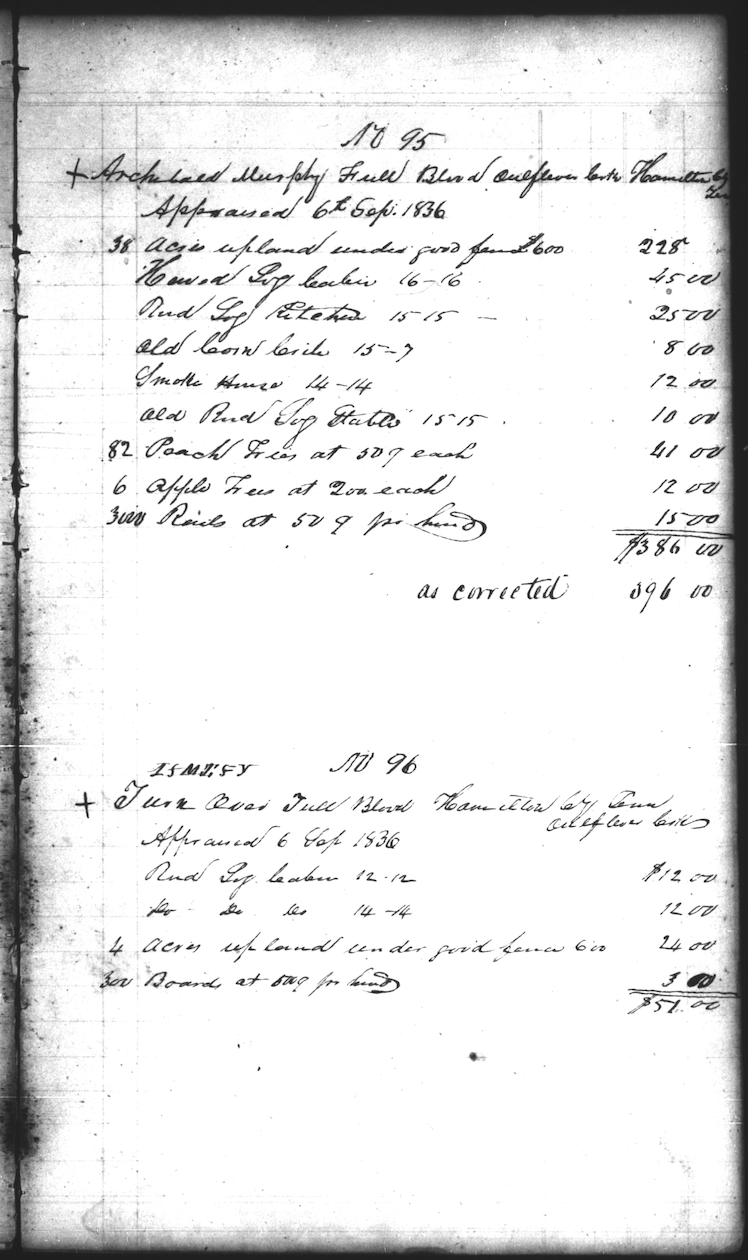 No 95
+ Archibald Murphy Full Blood Ooltewer Creek Hamilton Cty Ten
Appraised 6th Sep. 1836
38 Acres upland under good fence $600 228
Hewed Log Cabin 16-16 45 00
Rnd Log Kitchen 15 15 - 25 00
Old Corn Crib 15-7 8 00
Smoke House 14-14 12 00
Old Rnd Log Stable 15 15 10 00
82 Peach Trees at 50 ¢ each 41 00
6 Apple Trees at 200 each 12 00
3000 Rails at 50 ¢ pr hund 15 00
$386 00
as corrected 396 00
No 96
+ Turn Over Full Blood Hamilton Cty Tenn
Appraised 6 Sep 1836
Rnd Log Cabin 12-12 $12 00
Do Do Do 14-14 12 00
4 Acres upland under good fence 600 24 00
300 Boards at 50¢ pr hund 3 00
$51.00